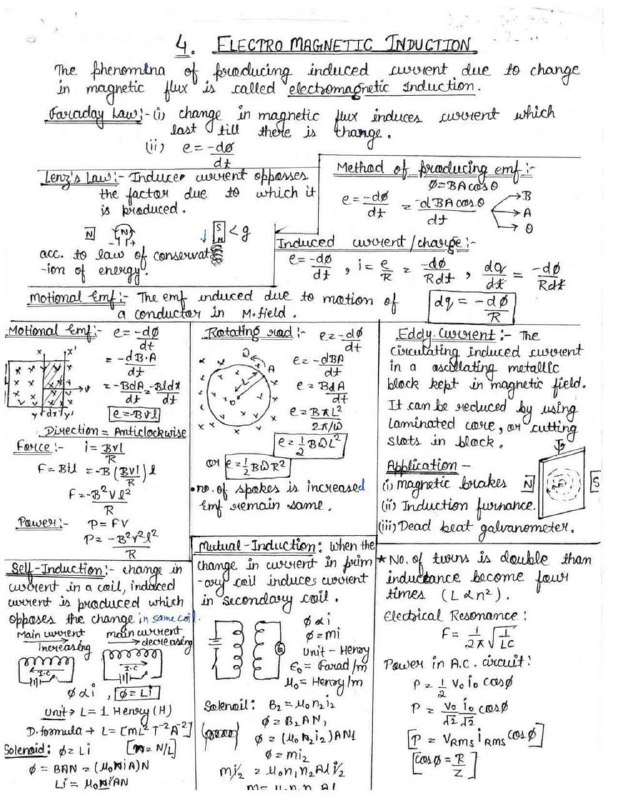 4. ELECTRO MAGNETIC INDUCTION
The phenomina of producing induced current due to change
in magnetic flux is called electromagnetic induction.
Faraday Law:- (i) change in magnetic flux induces current which
last till there is change.
(ii) e = -dø
dt
Lenz's Law:- Induce current opposses
the factor due to which it
is produced.
N N S N < g
acc. to law of conservat
-ion of energy.
Method of producing emf:-
ø = BA cos θ
e = -dø/dt = -dBA cos θ/dt → B
→ A
→ θ
Induced current/charge:-
e = -dø/dt, i = e/R = -dø/Rdt, dq/dt = -dø/Rdt
dq = -dø/R
Motional Emf:- The emf induced due to motion of
a conductor in M.field.
Motional Emf:- e = -dø/dt
= -dB·A/dt
= -BdA/dt = -Bldx/dt
e = -Bvl
x x'
y dx y'
v
Direction = Anticlockwise
Force:- i = Bvl/R
F = Bil = -B(Bvl/R)l
F = -B²vl²/R
Power:- P = FV
P = -B²v²l²/R
Rotating rod:- e = -dø/dt
e = -dBA/dt
e = BdA/dt
e = BπL²/2π/ω
e = 1/2 BωL²
or e = 1/2 BωR²
• no. of spokes is increased
Emf remain same.
Eddy Current:- The
circulating induced current
in a oscillating metallic
block kept in magnetic field.
It can be reduced by using
laminated core, or cutting
slots in block.
Application -
(i) Magnetic brakes
(ii) Induction furnance.
(iii) Dead beat galvanometer.
N S
Self-Induction:- change in
current in a coil, induced
current is produced which
opposes the change in same coil.
Main current increasing
main current decreasing
I·C I·C
ø α i, ø = Li
Unit → L = 1 Henry (H)
D.formula → L = [ML²T⁻²A⁻²]
Solenoid: ø = Li [n = N/L]
ø = BAN = (μ₀ni A)N
Li = μ₀niAN
Mutual-Induction: when the
change in current in prim
-ary coil induces current
in secondary coil.
ø α i
ø = mi
Unit - Henry
ε₀ = Farad/m
μ₀ = Henry/m
Solenoil: B₂ = μ₀n₂i₂
ø = B₂AN,
ø = (μ₀n₂i₂)ANl
ø = mi₂
mi₂ = μ₀n₁n₂Ali₂
★ No. of turns is double than
inductance become four
times (L α n²).
Electrical Resonance:
F = 1/2π √1/LC
Power in A.C. circuit:
P = 1/2 V₀ i₀ cosø
P = V₀/√2 i₀/√2 cosø
[P = VRMS iRMS cosø]
[cosø = R/Z]